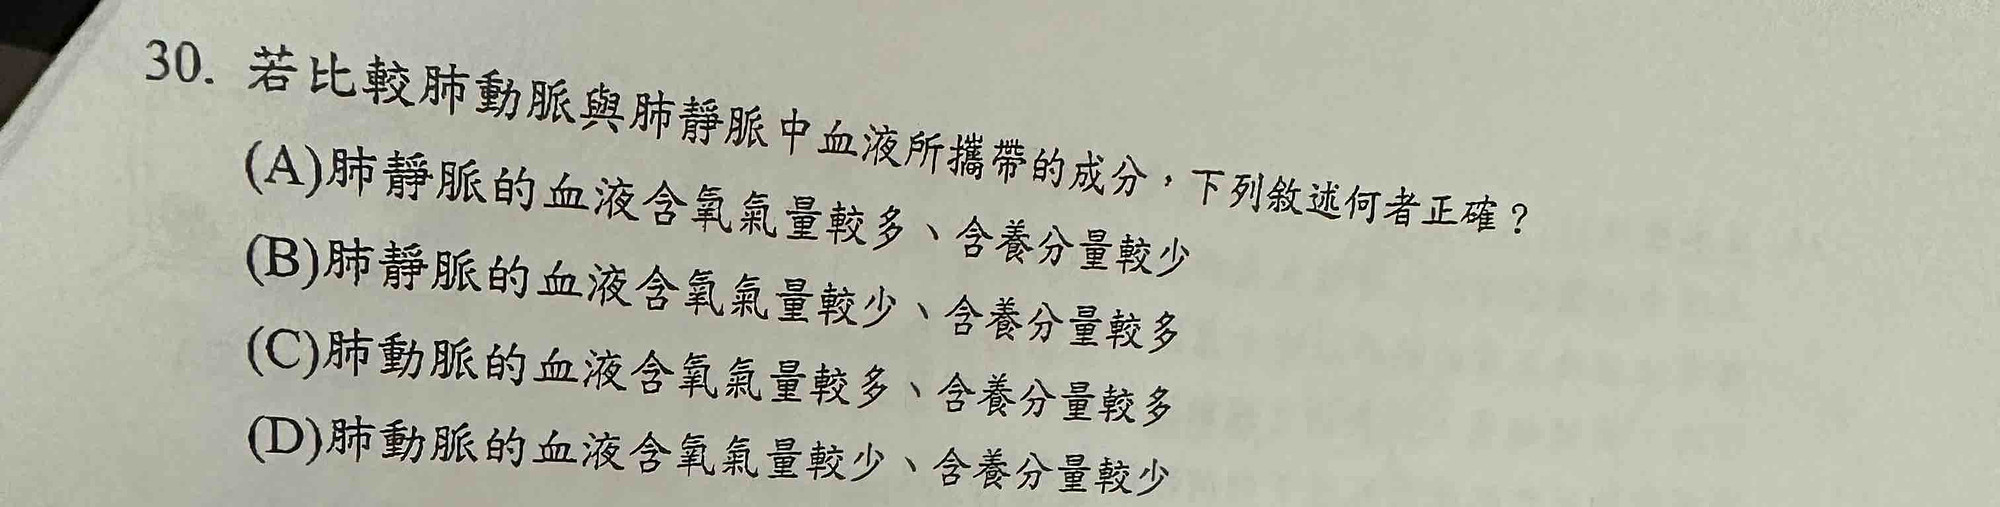 30. 若比較肺動脈與肺靜脈中血液所攜帶的成分，下列敘述何者正確？
(A)肺靜脈的血液含氧氣量較多、含養分量較少
(B)肺靜脈的血液含氧氣量較少、含養分量較多
(C)肺動脈的血液含氧氣量較多、含養分量較多
(D)肺動脈的血液含氧氣量較少、含養分量較少